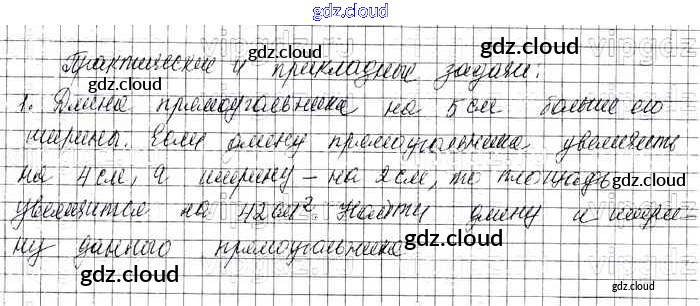 gdz.cloud
Практические и прикладные задачи.
gdz.cloud
1. Длина прямоугольника на 5 см больше его
gdz.cloud
ширины. Если длину прямоугольника увеличить
gdz.cloud
на 4 см, а ширину – на 2 см, то площадь
gdz.cloud
увеличится на 42 см². Найти длину и шири-
gdz.cloud
ну данного прямоугольника
gdz.cloud
gdz.cloud